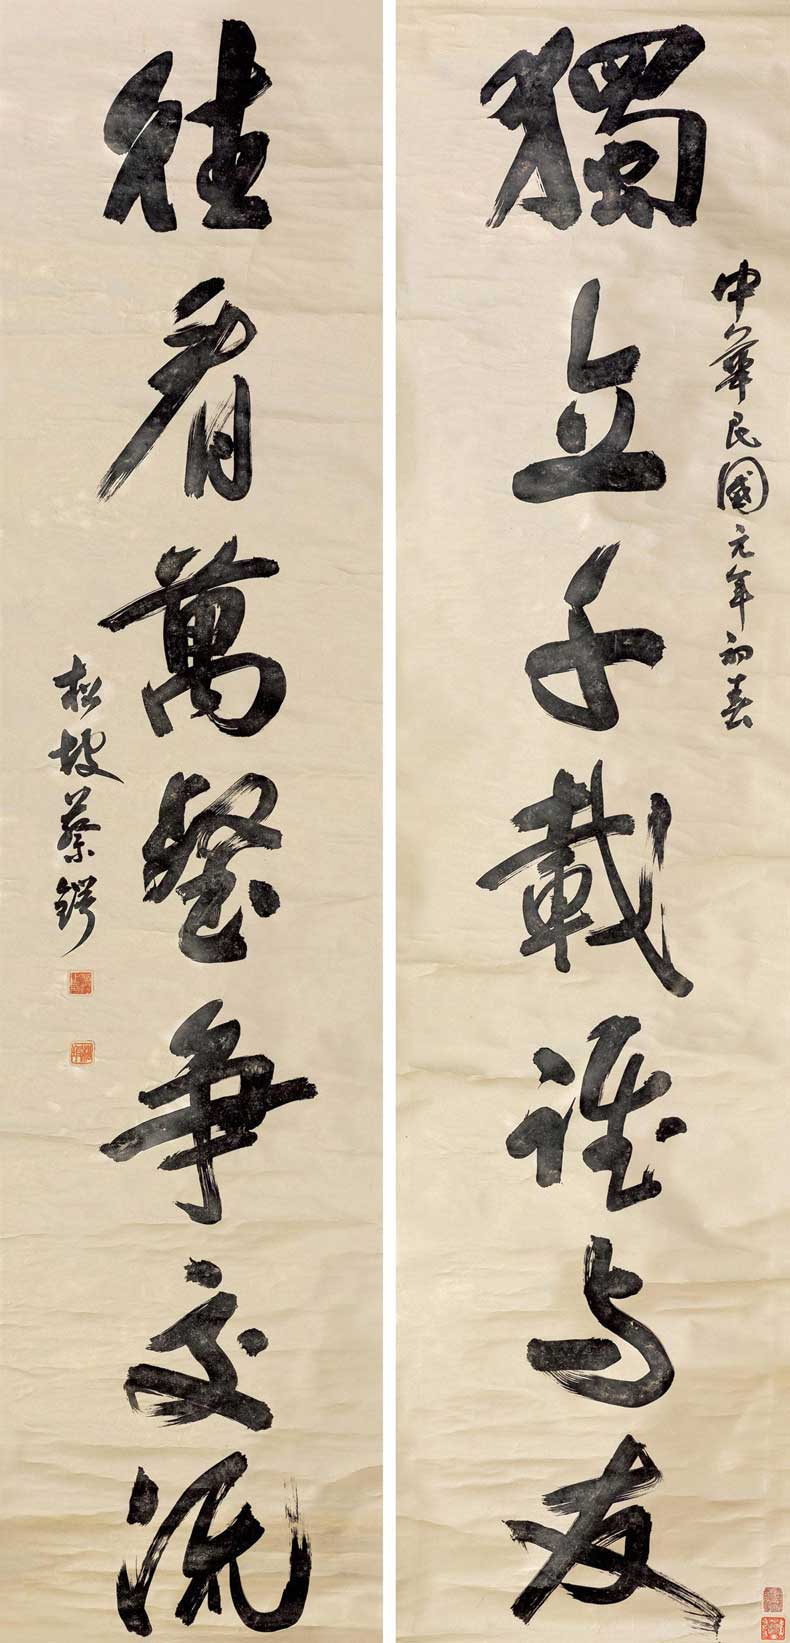 中華民國元年初春
獨立千載誰与友
往看萬壑爭交流
松坡蔡鍔